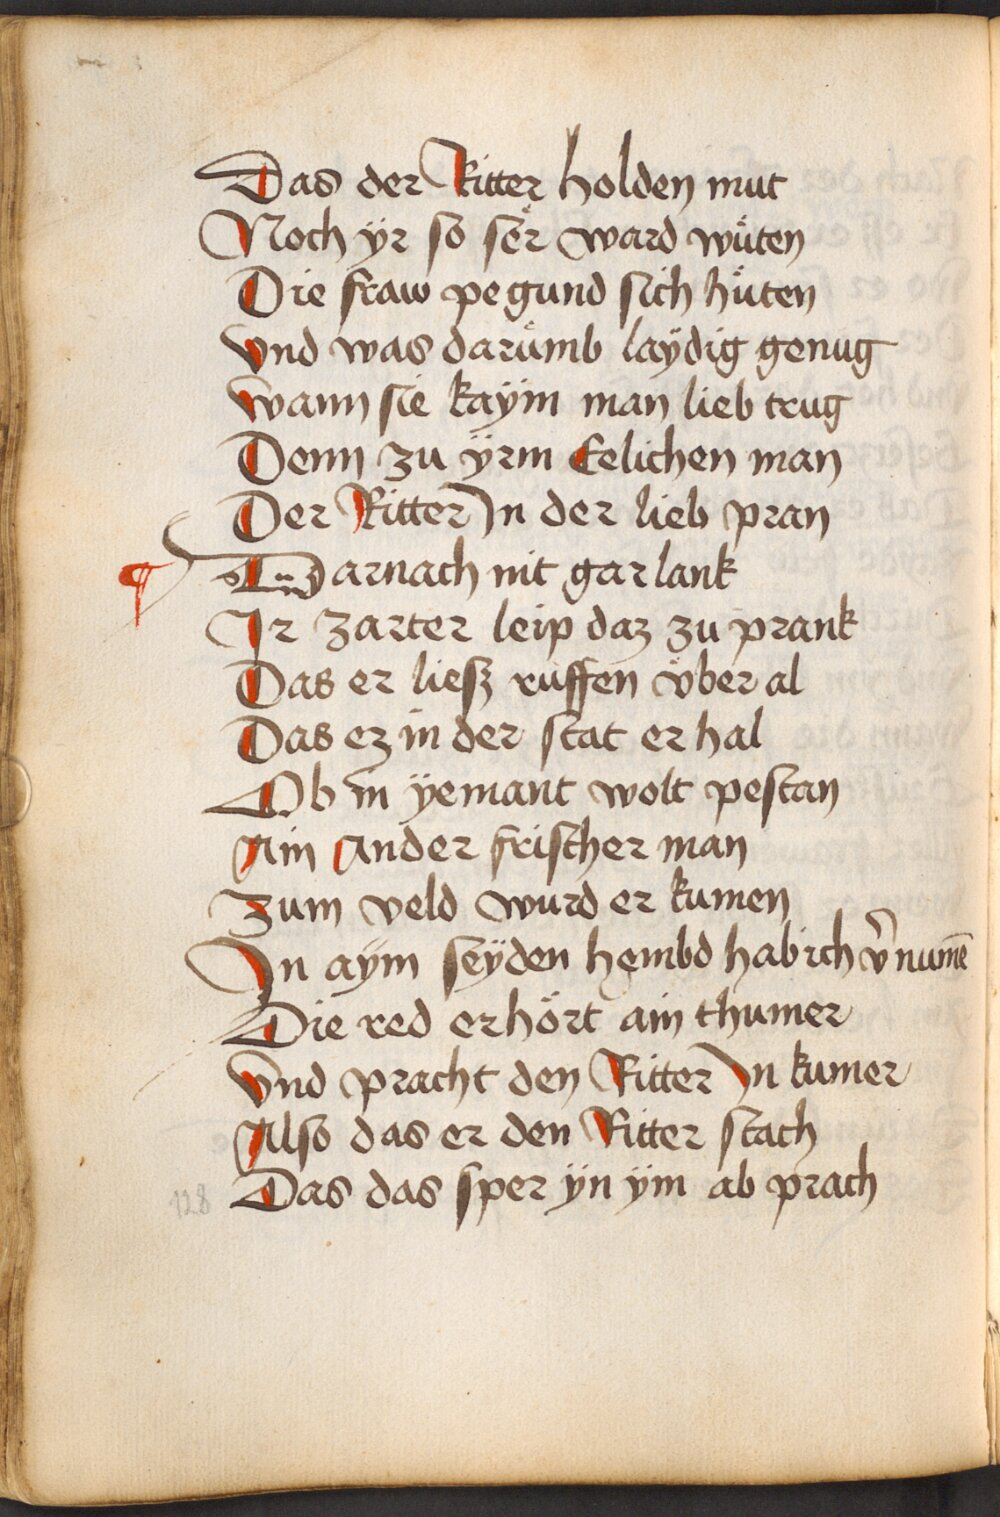 Das der Ritter holden mut
Noch ÿr so ser ward wüten
Die fraw pegund sich hüten
Vnd was darümb laÿdig genug
Wann sie kaÿm man lieb trug
Denn zu ÿrm Eelichen man
Der Ritter In der lieb pran
¶ Darnach nit gar lank
Ir zarter leip daz zu prank
Das er liesz ruffen vber al
Das ez in der stat er hal
Ob in ÿemant wolt pestan
Ain Ander frischer man
Zum veld wurd er kumen
In aÿm seÿden hembd hab ich v̄numē
Die red erhört ain thumer
Vnd pracht den Ritter In kumer
Also das er den Ritter stach
Das das sper ÿn ÿm ab prach
128